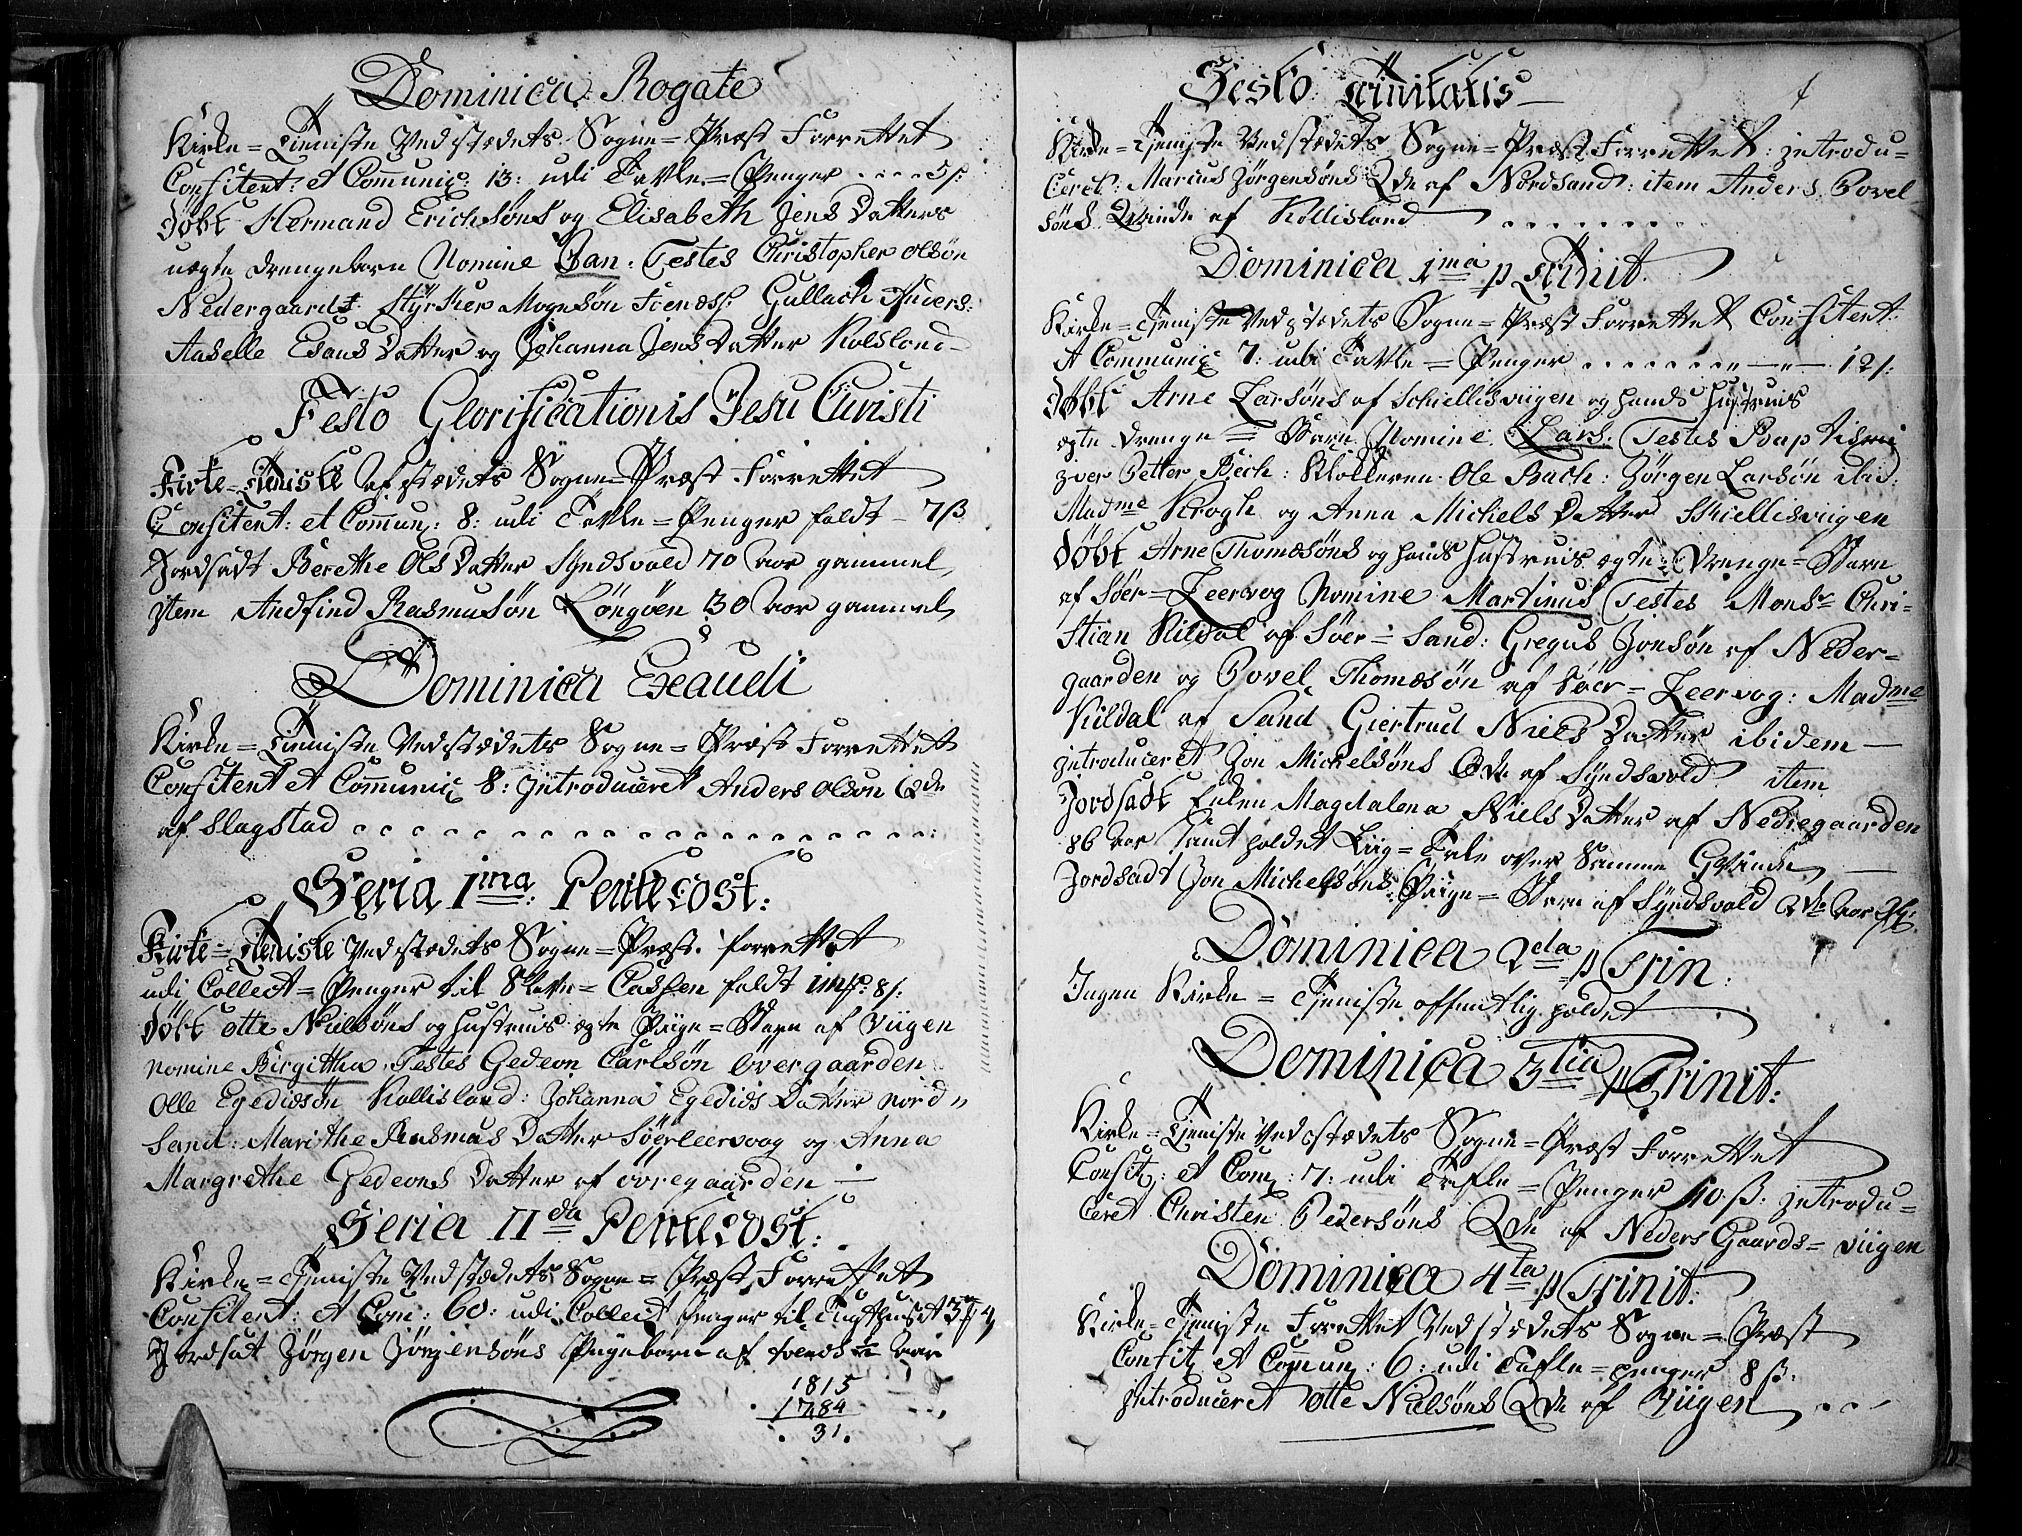 Dominica Rogate
Kirke = Tieniste Ved stædets Sogne = Præst Forrettet
Confitent: et Communic: 13: udi Tavle = Penger .... 5 s:
Døbt Hermand Erichsøns og Elisabeth Jens Datters
uægte drengebarn Nomine Jan. Testes Christopher Olsøn
Nedergaard: Styrker Mogensøn Gullach Anders:
Aaselle Esaus Datter og Johanna Jens Datter Kolsland
Festo Glorificationis Jesu Christi
Kirke = Tieniste af stædets Sogne = Præst Forrettet
Confitent: et Commun: 8: udi Tavle = Penger faldt – 7 ß
Jordsadt Berethe Ols Datter Syndsvold 70 aar gammel,
item Andfind Rasmusøn Løngøen 30 aar gammel,
Dominica Exaudi
Kirke = Tieniste Ved stædets Sogne = Præst Forrettet
Confitent et Communic 8: Introduceret Anders Olsøn Qde
af Slagstad
Feria 1ma: Pentecost:
Kirke = Tieniste Ved stædets Sogne = Præst. forrettet
udi Collect = Penger til = Cassen faldt 8 s:
Døbt Otte Nielsøns og Hustrues ægte Piige = Barn af Viigen
nomine Birgitha. Testes Gedeon Carlsøn Øvergaarden
Olle Egediesøn Kollisland: Johanna Egedies Datter Nord =
Sand: Marithe Rasmus Datter Søerleervog og Anna
Margrethe Gedeons Datter af Øvregaarden –
Feria IIda Pentecost:
Kirke = Tieniste Ved Stædets Sogne = Præst Forrettet
Confitent: et Com: 60: udi Collect Penger til Tugthuset
Jordsat Jørgen Jørgensøns Pigebarn af aar
1815
1784
. 31.
Festo Trinitatis
Kirke = Tjeniste Ved stædets Sogne = Præst Forrettet: Introdu =
ceret: Marcus Jørgensøns Qde af Nordsand: item Anders Povel
søns Qvinde af Kollisland
Dominica 1ma p Trinit.
Kirke = Tjeniste Ved stædets Sogne = Præst Forrettet Confitent:
et Communic: 7: udi Tavle = Penger 12 s:
Døbt Arne Larsøns af Schiellisviigen og hands Hustruis
ægte drenge = Barn Nomine Lars. Testes Baptismi
Iver Petter Bech: Klokkeren Ole Bach: Jørgen Larsøn ibid:
Madme Krogh og Anna Michels Datter Skiellisviigen
Døbt Arne Thomesøns og hands Hustruis ægte Drenge = Barn
af Søer = Leervog Nomine Martinus Testes Monsr Chri =
stian Kildal af Søer = Sand: Gregus Jonsøn af Neder =
gaarden og Povel Thomesøn af Søer = Leervog: Madme
Kildal af Sand Giertrud Niels Datter ibidem —
Introduceret Jon Michelsøns Qde af Syndsvold item
Jordsadt Enken Magdalena Niels Datter af Nedregaarden
86 aar samt holdet Liig = Tale over Samme Qvinde, —
Jordsadt Jon Michelsøns Piige = Barn af Syndsvold
Dominica 2da p Trin:
Ingen Kirke = Tjeniste offentlig holdet
Dominica 3tia p Trinit:
Kirke = Tjeniste Ved stædets Sogne = Præst Forrettet
Confit: et Com: 7: udi Tafle = Penger 10 ß: Introdu =
ceret Christen Pedersøns Qde af Neders Gaards = Viigen
Dominica 4ta p Trinit:
Kirke = Tjeniste Forrettet Ved Stædets Sogne = Præst
Confit et Commun: 6: udi Tafle = penger 8 ß:
Introduceret Otte Nielsøns Qde af Viigen